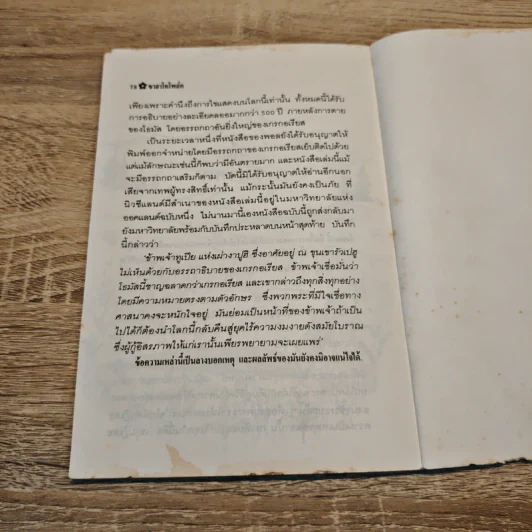 78 ✿ ชาลาโตโพล์ค
เพียงเพราะคำนึงถึงการไขแสดงบนโลกนี้เท่านั้น ทั้งหมดนี้ได้รับ
การอธิบายอย่างละเอียดลออมากกว่า 500 ปี ภายหลังการตาย
ของโธมัส โดยอรรถกถาอันยิ่งใหญ่ของเกรกอเรียส
เป็นระยะเวลาหนึ่งที่หนังสือของพอลยังได้รับอนุญาตให้
พิมพ์ออกจำหน่ายโดยมีอรรถกถาของเกรกอเรียสเย็บติดไปด้วย
แต่แม้ลักษณะเช่นนี้ก็พบว่ามีอันตรายมาก และหนังสือเล่มนี้แม้
จะมีอรรถกถาเสริมก็ตาม บัดนี้มิได้รับอนุญาตให้อ่านอีกนอก
เสียจากเทพผู้ทรงสิทธิ์เท่านั้น แม้กระนั้นมันยังคงเป็นภัย ที่
นิวซีแลนด์มีสำเนาของหนังสือเล่มนี้อยู่ในมหาวิทยาลัยแห่ง
ออคแลนด์ฉบับหนึ่ง ไม่นานมานี้เองหนังสือฉบับนี้ถูกส่งกลับมา
ยังมหาวิทยาลัยพร้อมกับบันทึกประหลาดบนหน้าสุดท้าย บันทึก
นี้กล่าวว่า
'ข้าพเจ้าทูเปีย แห่งเผ่างาปูฮี ซึ่งอาศัยอยู่ ณ ขุนเขารัวเปฮู
ไม่เห็นด้วยกับอรรถาธิบายของเกรกอเรียส ข้าพเจ้าเชื่อมั่นว่า
โธมัสนี้ชาญฉลาดกว่าเกรกอเรียส และเขากล่าวถึงทุกสิ่งทุกอย่าง
โดยมีความหมายตรงตามตัวอักษร ซึ่งพวกพระที่มีใจเชื่อทาง
ศาสนาคงจะหนักใจอยู่ มันย่อมเป็นหน้าที่ของข้าพเจ้าถ้าเป็น
ไปได้ก็ต้องนำโลกนี้กลับคืนสู่ยุคไร้ความงมงายดังสมัยโบราณ
ซึ่งผู้กู้อิสรภาพให้แก่เรานั้นเพียรพยายามจะเผยแพร่'
ข้อความเหล่านี้เป็นลางบอกเหตุ และผลลัพธ์ของมันยังคงมิอาจแน่ใจได้.